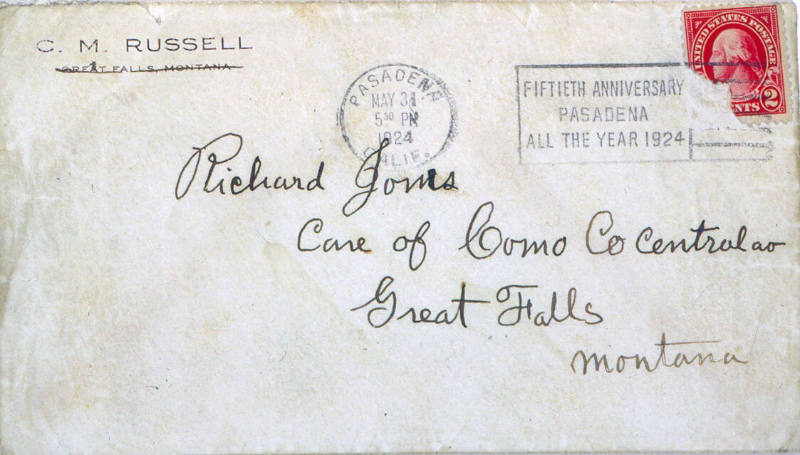 C. M. RUSSELL
GREAT FALLS, MONTANA
PASADENA
MAY 31
5 30 PM
1924
CALIF.
FIFTIETH ANNIVERSARY
PASADENA
ALL THE YEAR 1924
UNITED STATES POSTAGE
CENTS 2
Richard Jones
Care of Como Co Central av
Great Falls
Montana